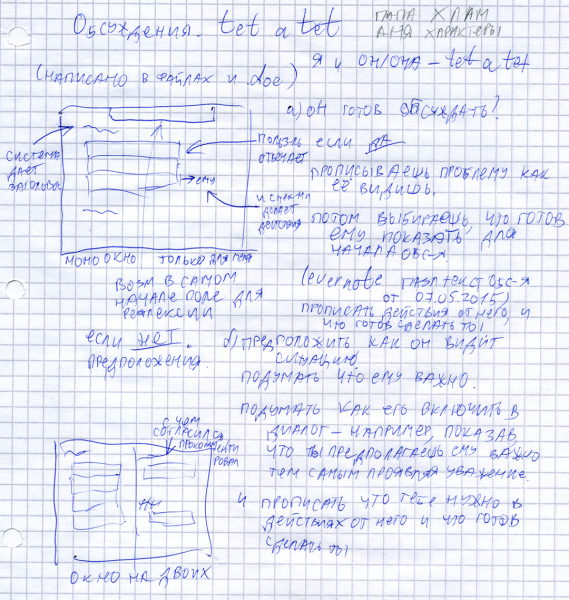 Обсуждения. tet a tet
ПАПА ХЛАМ
АНЯ ХАРАКТЕРЫ
Я и ОН/ОНА – tet a tet
(НАПИСАНО В ФАЙЛАХ и .doc)
а) ОН ГОТОВ ОБСУЖДАТЬ?
СИСТЕМА
ДАЕТ
отвечает
если ДА
ПРОПИСЫВАЕШЬ ПРОБЛЕМУ КАК
ЕЁ ВИДИШЬ.
ему
делает
действия
ПОТОМ ВЫБИРАЕШЬ, ЧТО ГОТОВ
ЕМУ ПОКАЗАТЬ ДЛЯ
НАЧАЛА ОБС-Я.
МОНО ОКНО ТОЛЬКО ДЛЯ МЕНЯ
ВОЗМ В САМОМ
НАЧАЛЕ ПОЛЕ ДЛЯ
РЕФЛЕКСИИ
(evernote ТЕКСТ ОБС-Я
от 07.05.2015)
ПРОПИСАТЬ ДЕЙСТВИЯ ОТ НЕГО, И
ЧТО ГОТОВ СДЕЛАТЬ ТЫ
если НЕТ.
ПРЕДПОЛОЖЕНИЯ.
б) ПРЕДПОЛОЖИТЬ КАК ОН ВИДИТ
СИТУАЦИЮ
ПОДУМАТЬ ЧТО ЕМУ ВАЖНО.
ПОДУМАТЬ КАК ЕГО ВКЛЮЧИТЬ В
ДИАЛОГ – НАПРИМЕР, ПОКАЗАВ,
ЧТО ТЫ ПРЕДПОЛАГАЕШЬ ЕМУ ВАЖНО
ТЕМ САМЫМ ПРОЯВЛЯЯ УВАЖЕНИЕ.
И ПРОПИСАТЬ ЧТО ТЕБЕ НУЖНО В
ДЕЙСТВИЯХ ОТ НЕГО И ЧТО ГОТОВ
СДЕЛАТЬ ТЫ
С ЧЕМ
СОГЛАСИЛСЯ
ПРОКОММЕНТИ
РОВАЛ
ОКНО НА ДВОИХ